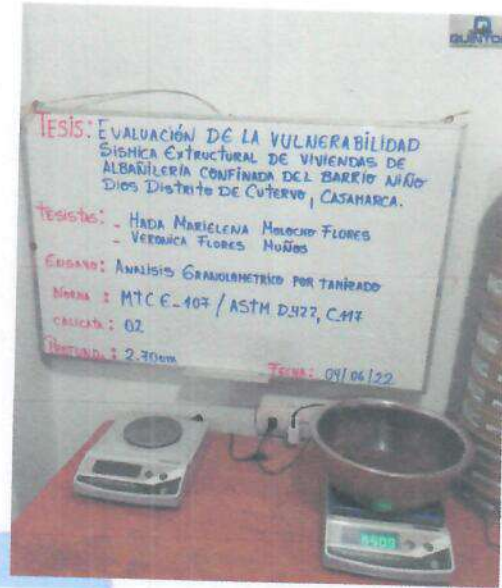 QUINTO
TESIS: EVALUACIÓN DE LA VULNERABILIDAD
SISMICA EXTRUCTURAL DE VIVIENDAS DE
ALBAÑILERÍA CONFINADA DEL BARRIO NIÑO
DIOS DISTRITO DE CUTERVO, CAJAMARCA.
TESISTAS: - HADA MARIELENA MOLOCHO FLORES
- VERONICA FLORES MUÑOS
ENSAYO: ANALISIS GRANOLAMETRICO POR TAMIZADO
NORMA : MTC E-107 / ASTM D.422, C.117
CALICATA : 02
PROFUND. : 2.70cm
FECHA: 04/06/22